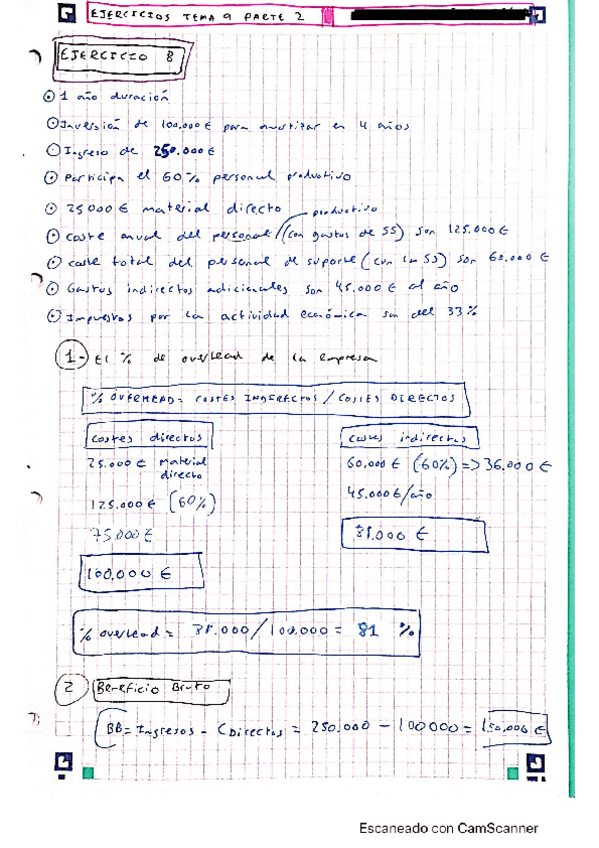 EJERCICIOS TEMA 9 PARTE 2
EJERCICIO 8
1 año duración
Inversión de 100.000 € para amortizar en 4 años
Ingreso de 250.000 €
Participa el 60% personal productivo
25000 € material directo
productivo
coste anual del personal (con gastos de SS) son 125.000 €
coste total del personal de suporte (con la SS) son 60.000 €
Gastos indirectos adicionales son 45.000 € al año
Impuestos por la actividad económica son del 33%
1- El % de overlead de la empresa
% OVERHEAD = COSTES INDIRECTOS / COSTES DIRECTOS
costes directos
25.000 € material directo
125.000 € (60%)
75.000 €
100,000 €
costes indirectos
60,000 € (60%) => 36.000 €
45.000 €/año
81.000 €
% overlead = 81.000 / 100.000 = 81 %
2 Beneficio Bruto
BB = Ingresos - CDirectos = 250.000 - 100000 = 150.000 €
Escaneado con CamScanner